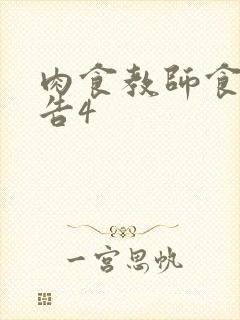 肉食教師食
告4
一宮思帆